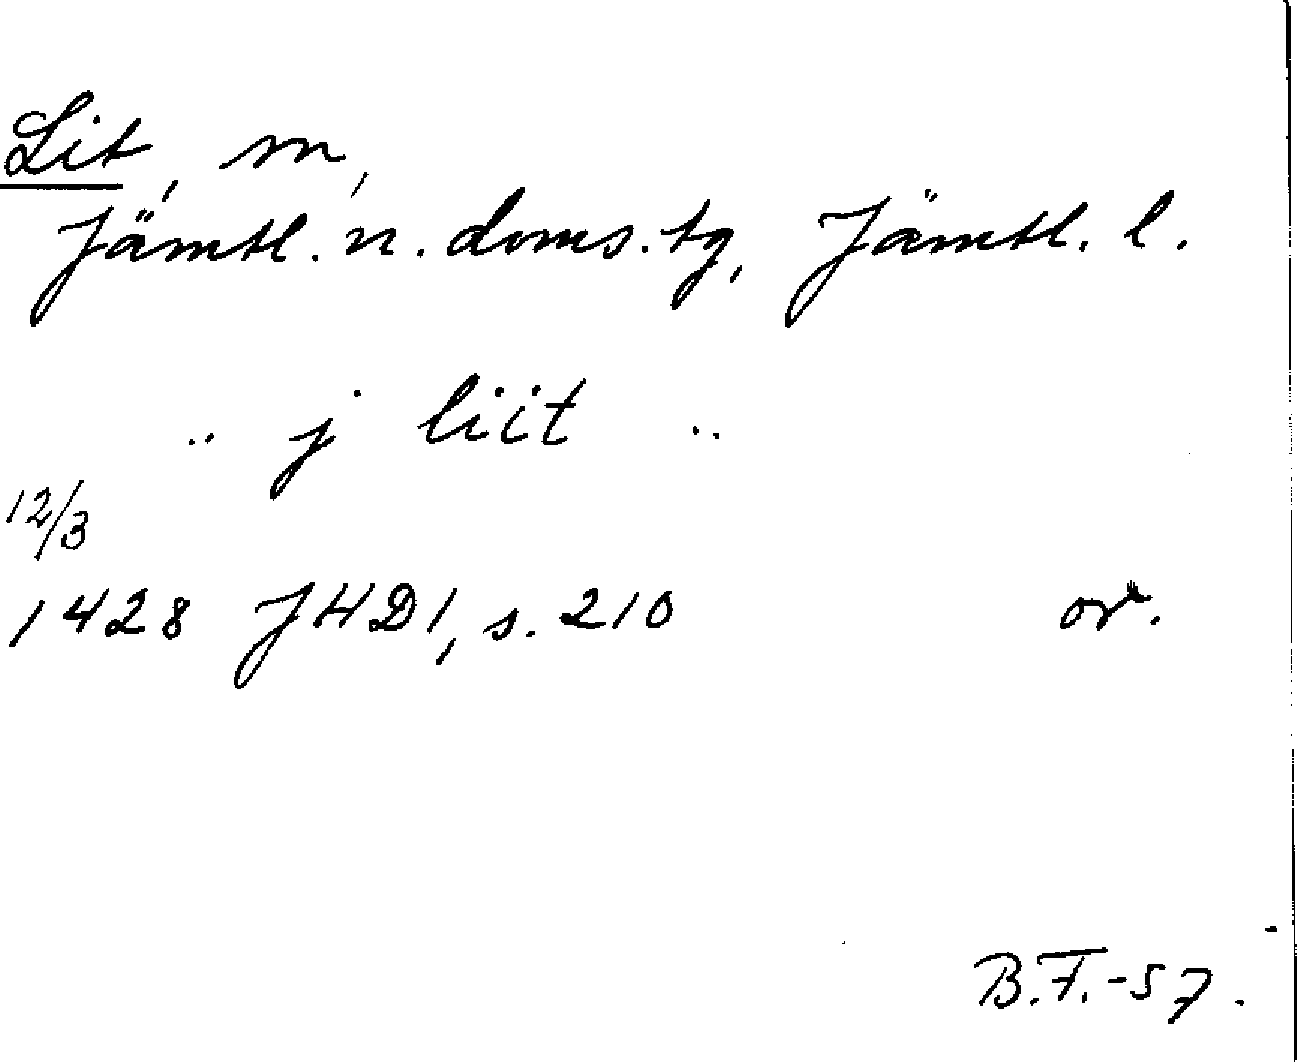 Lit, m,
Jämtl. n. doms.tg, Jämtl. l.
.. j liit ..
12/3
1428 JHD1, s. 210 or.
B.F.-57.